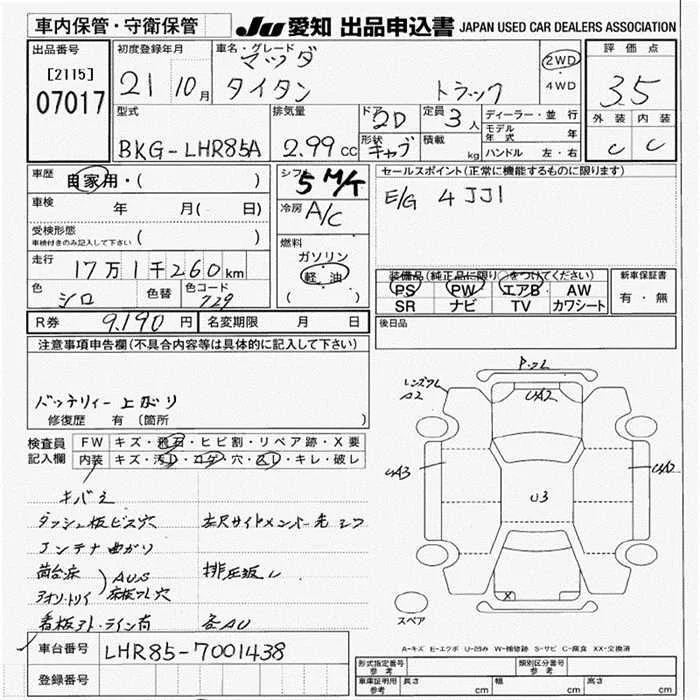 車内保管・守衛保管
JU 愛知 出品申込書 JAPAN USED CAR DEALERS ASSOCIATION
出品番号
[2115]
07017
初度登録年月
21 10月
車名・グレード
マツダ
タイタン トラック
2WD
4WD
評価点
3.5
外装 内装
C C
型式
BKG-LHR85A
排気量
2.99 cc
ドア
2D
形状
キャブ
定員
3人
積載
kg
ディーラー・並行
モデル年式 年
ハンドル 左・右
車歴 自家用・( )
車検 年 月( 日)
受検形態
車検付きのみ記入して下さい ( )
走行 17万1千260km
色 シロ 色替 色コード 729
シフト
5 M/T
冷房
A/C
燃料
ガソリン
(軽油)
セールスポイント(正常に機能するものに限ります)
E/G 4JJ1
装備品(純正品に限り○をつけてください)
PS PW エアB AW
SR ナビ TV カワシート
新車保証書
有・無
R券 9,190円 名変期限 月 日
後日品
注意事項申告欄(不具合内容等は具体的に記入して下さい)
バッテリィー上がり
修復歴 有 〔箇所 〕
検査員記入欄
FW キズ・飛石・ヒビ割・リペア跡・X要
内装 キズ・汚れ・コゲ・穴・スレ・キレ・破レ
キバミ
ダッシュ板ビス穴 左尺サイドメンバー先
コンテナ曲がり
荷台床 AUS 排圧返し
アオリ・トリイ
看板アト・ライン有 各AU
レンズワレ
A2
UA2
UA3
U3
UA2
X
スペア
A-キズ E-エクボ U-凹み W-補修跡 S-サビ C-腐食 XX-交換済
車台番号 LHR85-7001438
登録番号
形式指定番号 参考
類別区分番号 参考
車庫証明用 参考 長さ cm 幅 cm 高さ cm